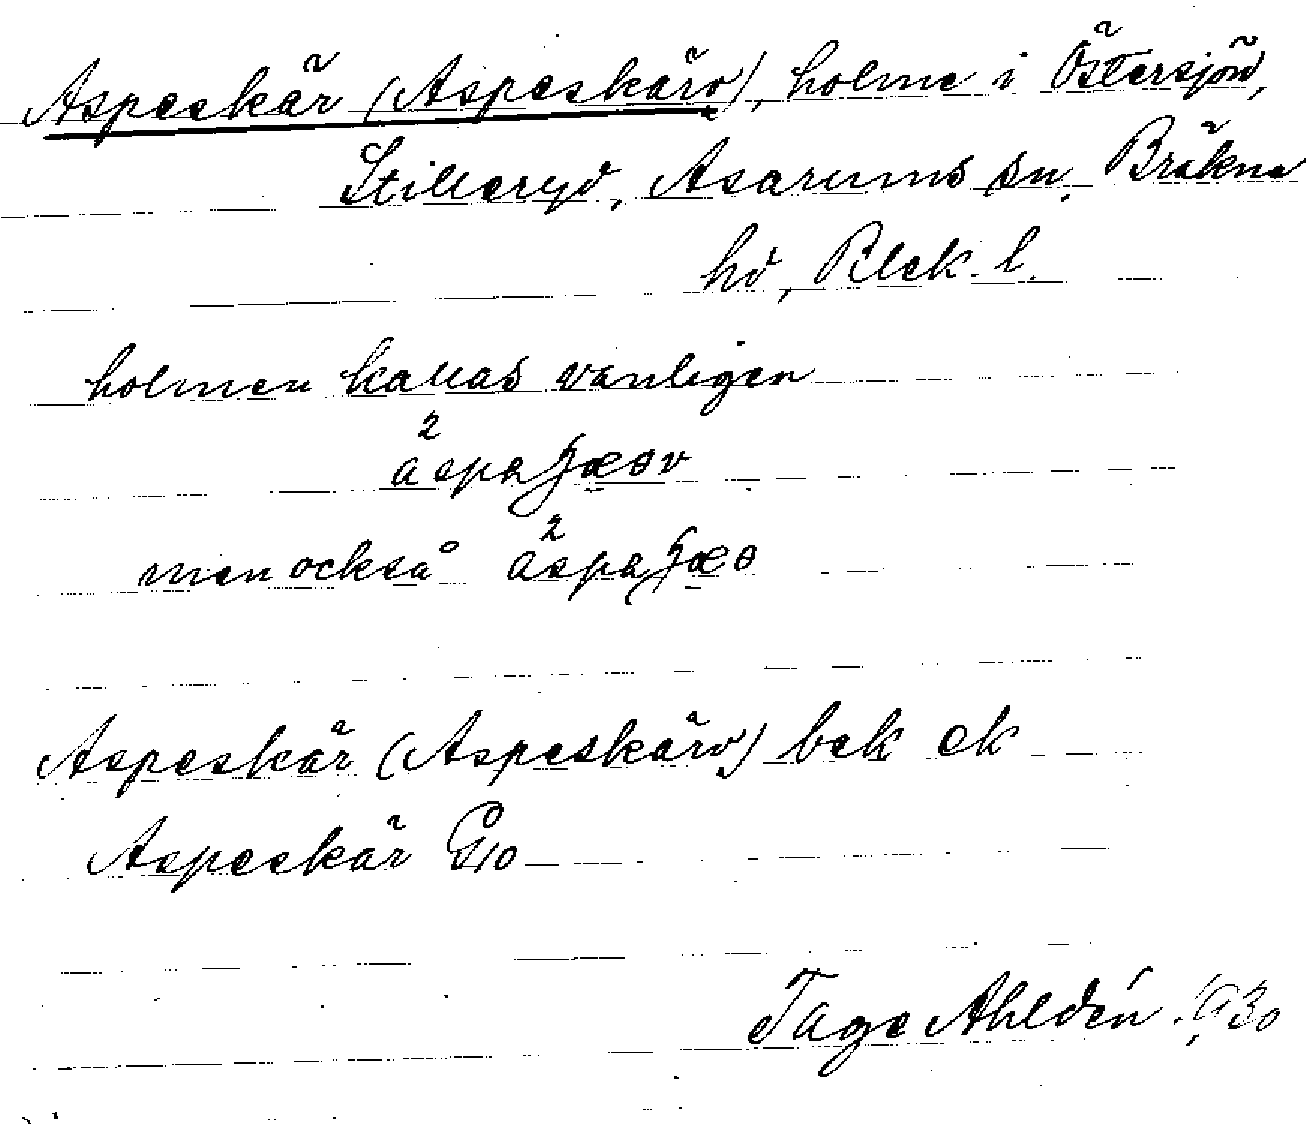 Aspeskär (Aspeskärv), holme i Östersjön,
Stilleryd, Asarums sn, Bräkne
hd, Blek. l.
holmen kallas vanligen
men också
Aspeskär (Aspeskärv) bek ek
Aspeskär
Tage Ahldén 1930